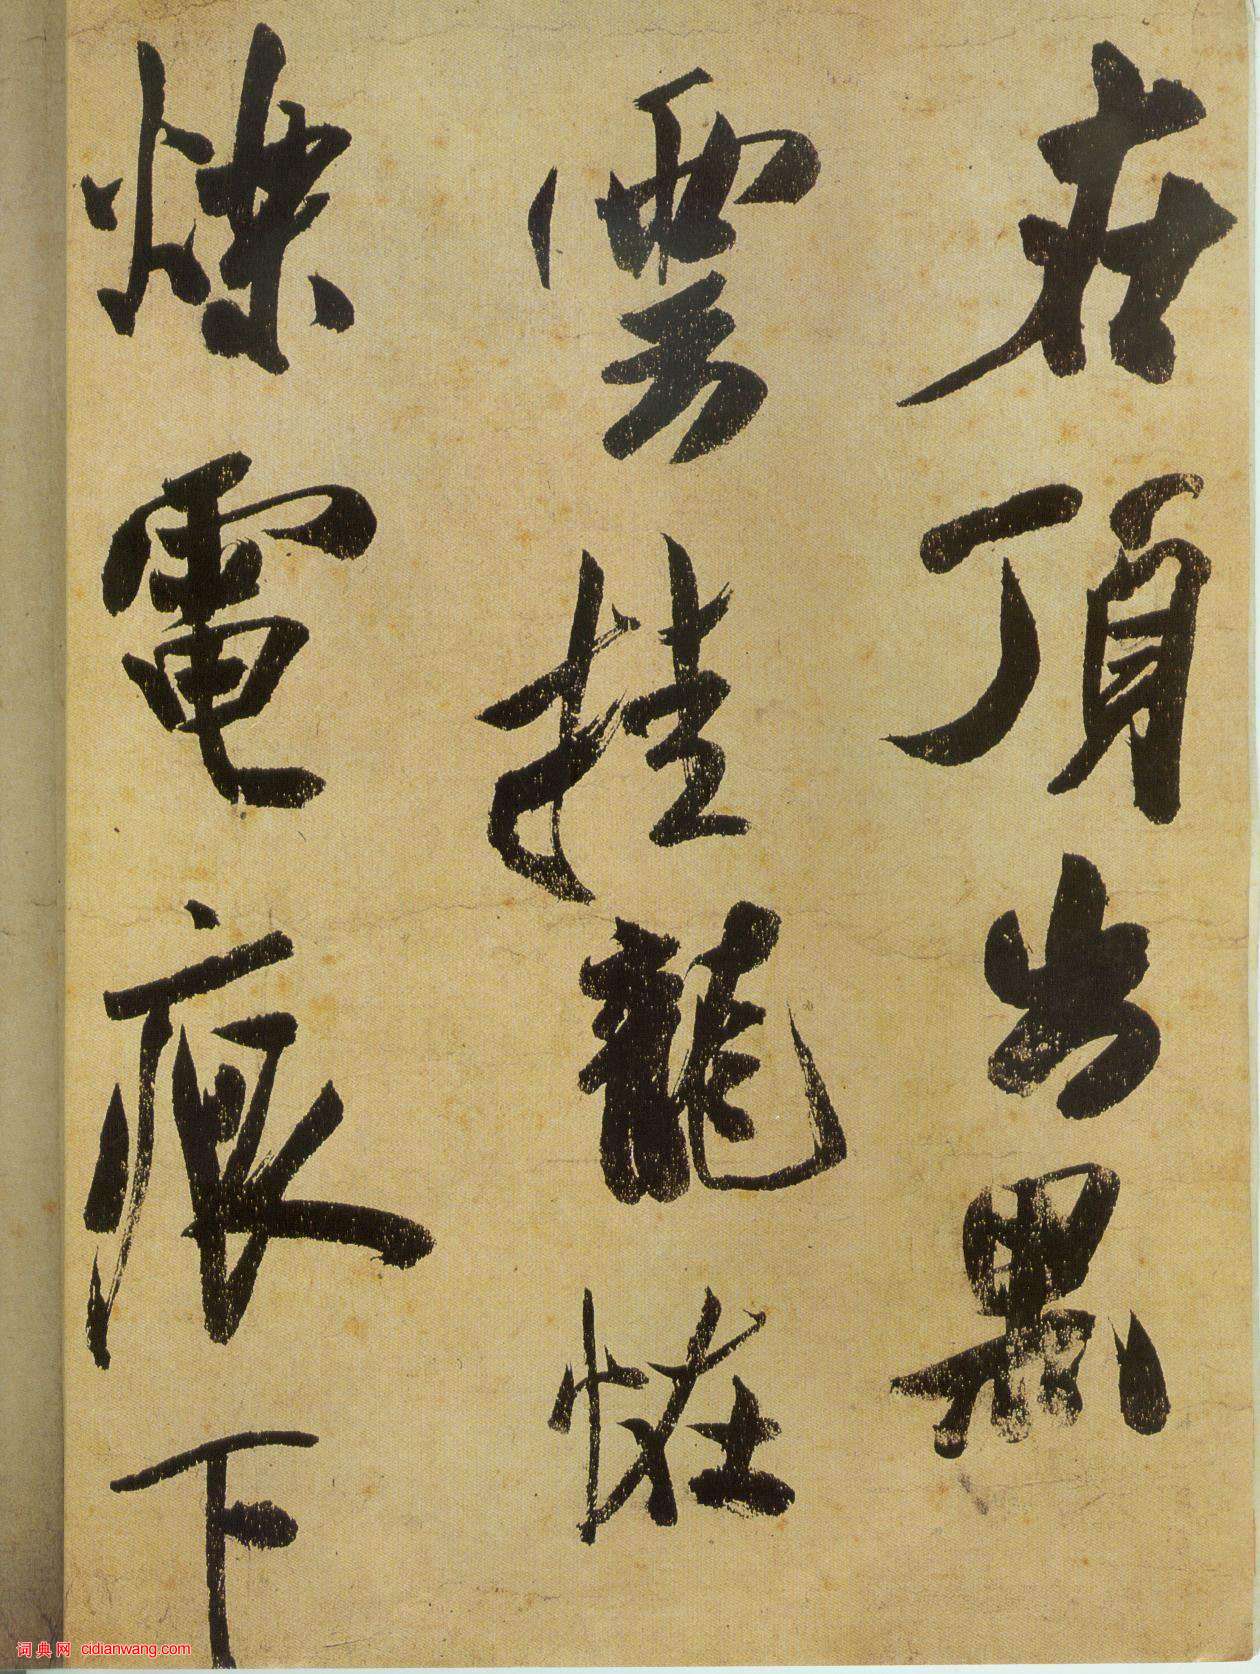 在頂出黑
雲挂龍恠
爍電痕下
词典网 cidianwang.com